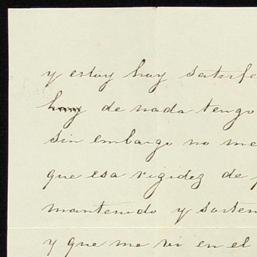 y estoy hoy satisfe
hoy de nada tengo
sin embargo no me
que esa rigidez de
mantenido y sosten
y que me vi en el